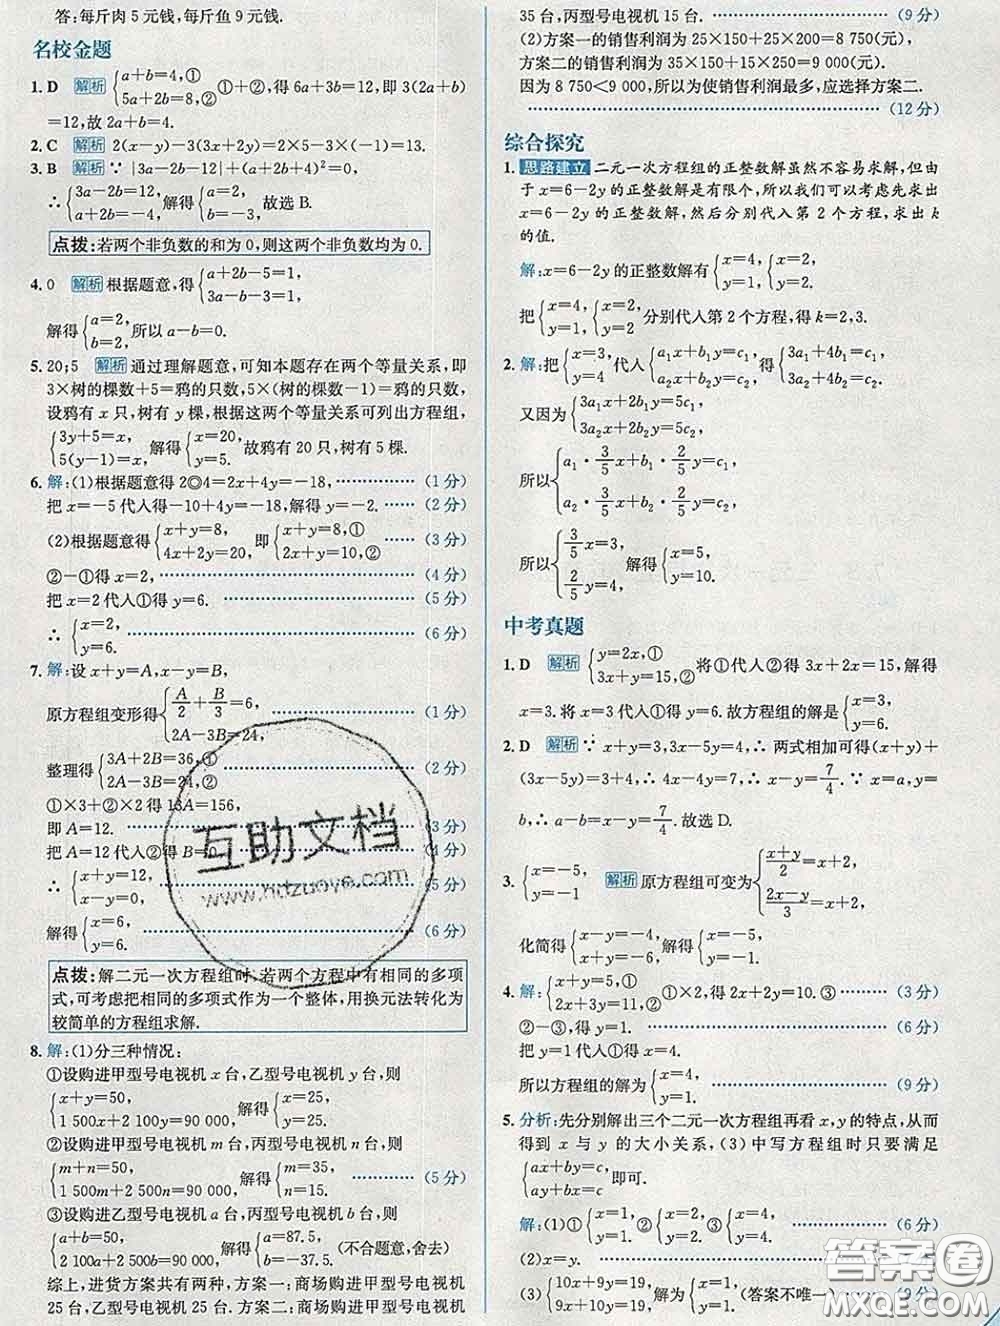 答:每斤肉 5 元钱,每斤鱼 9 元钱.
名校金题
1. D 解析 {a+b=4,① 5a+2b=8,② ①+②,得 6a+3b=12,即 3(2a+b)
=12,故 2a+b=4.
2. C 解析 2(x-y)-3(3x+2y)=2×5-3×(-1)=13.
3. B 解析 ∵ |3a-2b-12|+(a+2b+4)²=0,
∴ {3a-2b=12, a+2b=-4, 解得 故选 B.
点拨:若两个非负数的和为 0,则这两个非负数均为 0.
4. 0 解析 根据题意,得 {a+2b-5=1, 3a-b-3=1,
解得 {a=2, b=2, 所以 a-b=0.
5. 20;5 解析 通过理解题意,可知本题存在两个等量关系,即
3×树的棵数+5=鸦的只数,5×(树的棵数-1)=鸦的只数,
设鸦有 x 只,树有 y 棵,根据这两个等量关系可列出方程组,
{3y+5=x, 5(y-1)=x, 解得 {x=20, y=5, 故鸦有 20 只,树有 5 棵.
6. 解:(1)根据题意得 2◎4=2x+4y=-18, (1 分)
把 x=-5 代入得-10+4y=-18,解得 y=-2. (2 分)
(2)根据题意得 {x+y=8, 4x+2y=20, 即 {x+y=8,① 2x+y=10,② (3 分)
②-①得 x=2, (4 分)
把 x=2 代入①得 y=6. (5 分)
∴ {x=2, y=6. (6 分)
7. 解:设 x+y=A,x-y=B,
原方程组变形得 {A/2+B/3=6, 2A-3B=24, (1 分)
整理得 {3A+2B=36,① 2A-3B=24,② (2 分)
①×3+②×2 得 13A=156,
即 A=12. (3 分)
把 A=12 代入②得 B=0. (4 分)
∴ {x+y=12, x-y=0, (5 分)
解得 {x=6, y=6. (6 分)
点拨:解二元一次方程组时,若两个方程中有相同的多项
式,可考虑把相同的多项式作为一个整体,用换元法转化为
较简单的方程组求解.
8. 解:(1)分三种情况:
①设购进甲型号电视机 x 台,乙型号电视机 y 台,则
{x+y=50, 1 500x+2 100y=90 000, 解得 {x=25, y=25.
②设购进甲型号电视机 m 台,丙型号电视机 n 台,则
{m+n=50, 1 500m+2 500n=90 000, 解得 {m=35, n=15. (5 分)
③设购进乙型号电视机 a 台,丙型号电视机 b 台,则
{a+b=50, 2 100a+2 500b=90 000, 解得 {a=87.5, b=-37.5, (不合题意,舍去)
综上,进货方案共有两种,方案一:商场购进甲型号电视机
25 台,乙型号电视机 25 台.方案二:商场购进甲型号电视机
35 台,丙型号电视机 15 台. (9 分)
(2)方案一的销售利润为 25×150+25×200=8 750(元),
方案二的销售利润为 35×150+15×250=9 000(元),
因为 8 750<9 000,所以为使销售利润最多,应选择方案二.
(12 分)
综合探究
1. 思路建立 二元一次方程组的正整数解虽然不容易求解,但由
于 x=6-2y 的正整数解是有限个,所以我们可以考虑先求出
x=6-2y 的正整数解,然后分别代入第 2 个方程,求出 k
的值.
解:x=6-2y 的正整数解有 {x=4, y=1, {x=2, y=2.
把 {x=4, y=1, {x=2, y=2 分别代入第 2 个方程,得 k=2,3.
2. 解:把 {x=3, y=4 代入 {a₁x+b₁y=c₁, a₂x+b₂y=c₂, 得 {3a₁+4b₁=c₁, 3a₂+4b₂=c₂.
又因为 {3a₁x+2b₁y=5c₁, 3a₂x+2b₂y=5c₂,
所以 {a₁·3/5x+b₁·2/5y=c₁, a₂·3/5x+b₂·2/5y=c₂,
所以 {3/5x=3, 2/5y=4, 解得 {x=5, y=10.
中考真题
1. D 解析 {y=2x,① 3x+y=15,② 将①代入②得 3x+2x=15,解得
x=3.将 x=3 代入①得 y=6.故方程组的解是 {x=3, y=6.
2. D 解析 ∵ x+y=3,3x-5y=4,∴ 两式相加可得(x+y)+
(3x-5y)=3+4,∴ 4x-4y=7,∴ x-y=7/4.∵ x=a,y=
b,∴ a-b=x-y=7/4.故选 D.
3. {x=-5, y=-1 解析 原方程组可变为 {(x+y)/2=x+2, (2x-y)/3=x+2,
化简得 {x-y=-4, -x-y=6, 解得 {x=-5, y=-1.
4. 解: {x+y=5,① 2x+3y=11,② ①×2,得 2x+2y=10.③ (3 分)
②-③,得 y=1. (6 分)
把 y=1 代入①得 x=4.
所以方程组的解为 {x=4, y=1. (9 分)
5. 分析:先分别解出三个二元一次方程组再看 x,y 的特点,从而
得到 x 与 y 的大小关系,(3)中写方程组时只要满足
{ax+by=c, ay+bx=c 即可.
解:(1)① {x=1, y=1. ② {x=2, y=2. ③ {x=4, y=4. (6 分)
(2)x=y.
(3) {10x+9y=19, 9x+10y=19, 解为 {x=1, y=1. (答案不唯一) (9 分)
互助文档
www.hdzuoye.com
答案圈
MXQE.COM